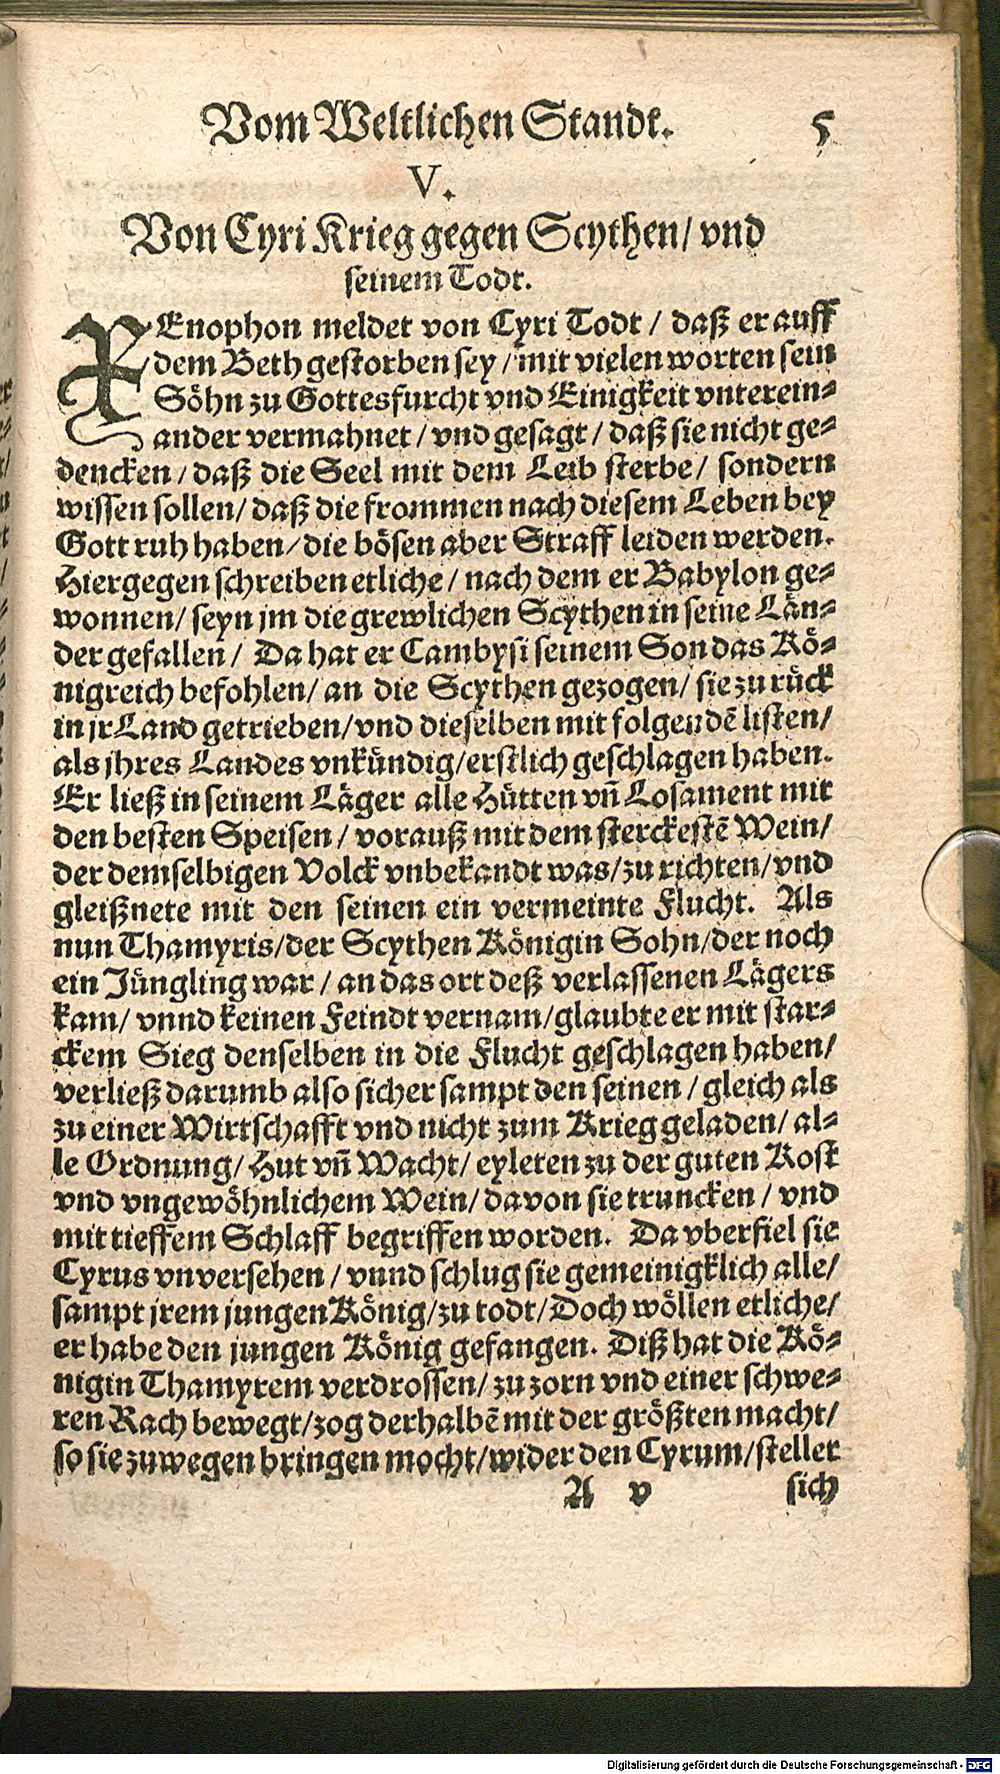 Vom Weltlichen Standt. 5
V.
Von Cyri Krieg gegen Scythen/ vnd
seinem Todt.
XEnophon meldet von Cyri Todt / daß er auff
dem Beth gestorben sey / mit vielen worten sein
Söhn zu Gottesfurcht vnd Einigkeit vnterein⸗
ander vermahnet / vnd gesagt / daß sie nicht ge⸗
dencken / daß die Seel mit dem Leib sterbe / sondern
wissen sollen/ daß die frommen nach diesem Leben bey
Gott ruh haben/ die bösen aber Straff leiden werden.
Hiergegen schreiben etliche / nach dem er Babylon ge⸗
wonnen/ seyn jm die grewlichen Scythen in seine Län⸗
der gefallen / Da hat er Cambysi seinem Son das Kö⸗
nigreich befohlen/ an die Scythen gezogen/ sie zu rück
in jr Land getrieben/ vnd dieselben mit folgendē listen/
als jhres Landes vnkündig/ erstlich geschlagen haben.
Er ließ in seinem Läger alle Hütten vñ Losament mit
den besten Speisen / vorauß mit dem sterckestē Wein/
der demselbigen Volck vnbekandt was/ zu richten/ vnd
gleißnete mit den seinen ein vermeinte Flucht. Als
nun Thamyris/ der Scythen Königin Sohn/ der noch
ein Jüngling war / an das ort deß verlassenen Lägers
kam/ vnnd keinen Feindt vernam/ glaubte er mit star⸗
ckem Sieg denselben in die Flucht geschlagen haben/
verließ darumb also sicher sampt den seinen / gleich als
zu einer Wirtschafft vnd nicht zum Krieg geladen/ al⸗
le Ordnung/ Hut vñ Wacht/ eyleten zu der guten Kost
vnd vngewöhnlichem Wein/ davon sie truncken / vnd
mit tieffem Schlaff begriffen worden. Da vberfiel sie
Cyrus vnversehen / vnnd schlug sie gemeinigklich alle/
sampt jrem jungen König/ zu todt/ Doch wöllen etliche/
er habe den jungen König gefangen. Diß hat die Kö⸗
nigin Thamyrem verdrossen/ zu zorn vnd einer schwe⸗
ren Rach bewegt/ zog derhalbē mit der größten macht/
so sie zuwegen bringen mocht/ wider den Cyrum/ stellet
A v sich
Digitalisierung gefördert durch die Deutsche Forschungsgemeinschaft - DFG